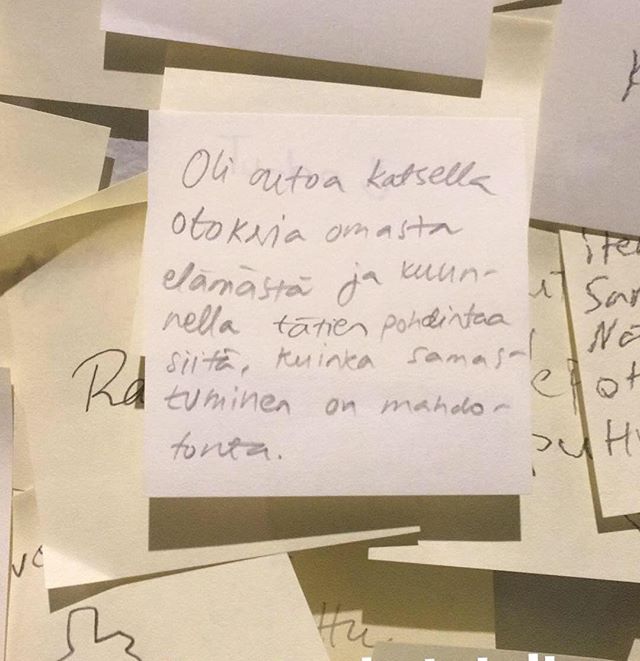 Oli outoa katsella
otoksia omasta
elämästä ja kuun-
nella tätien pohdintaa
siitä, kuinka samas-
tuminen on mahdo-
tonta.
Ra
Hu